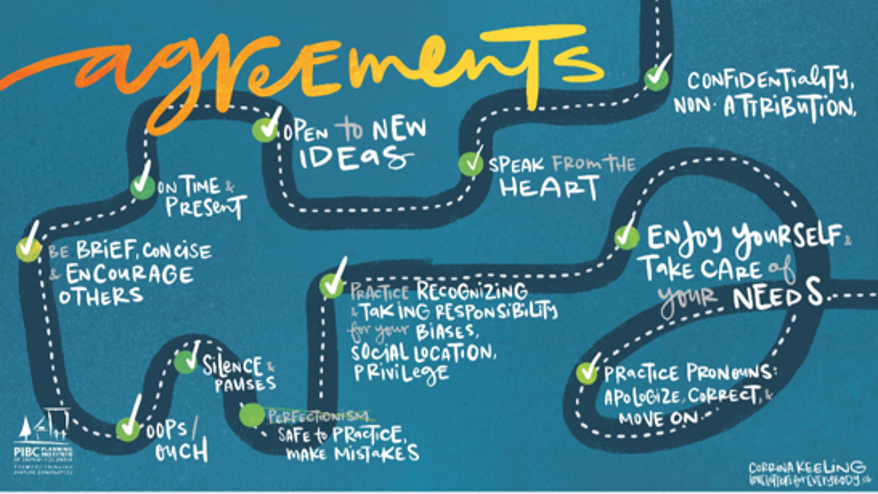 agreements
CONFIDENTIALITY,
NON-ATTRIBUTION.
SPEAK FROM THE
HEART
OPEN to NEW
IDEAS
ON TIME &
PRESENT
BE BRIEF, CONCISE
& ENCOURAGE
OTHERS
OOPS/
OUCH
SILENCE &
PAUSES
PERFECTIONISM
SAFE to PRACTICE,
MAKE MISTAKES
PRACTICE RECOGNIZING
& TAKING RESPONSIBILITY
for your BIASES,
SOCIAL LOCATION,
PRIVILEGE
ENJOY YOURSELF &
TAKE CARE of
your NEEDS.
PRACTICE PRONOUNS:
APOLOGIZE, CORRECT, &
MOVE ON.
PIBC PLANNING
INSTITUTE
OF BRITISH COLUMBIA
CORRINA KEELING
loveletters for everybody